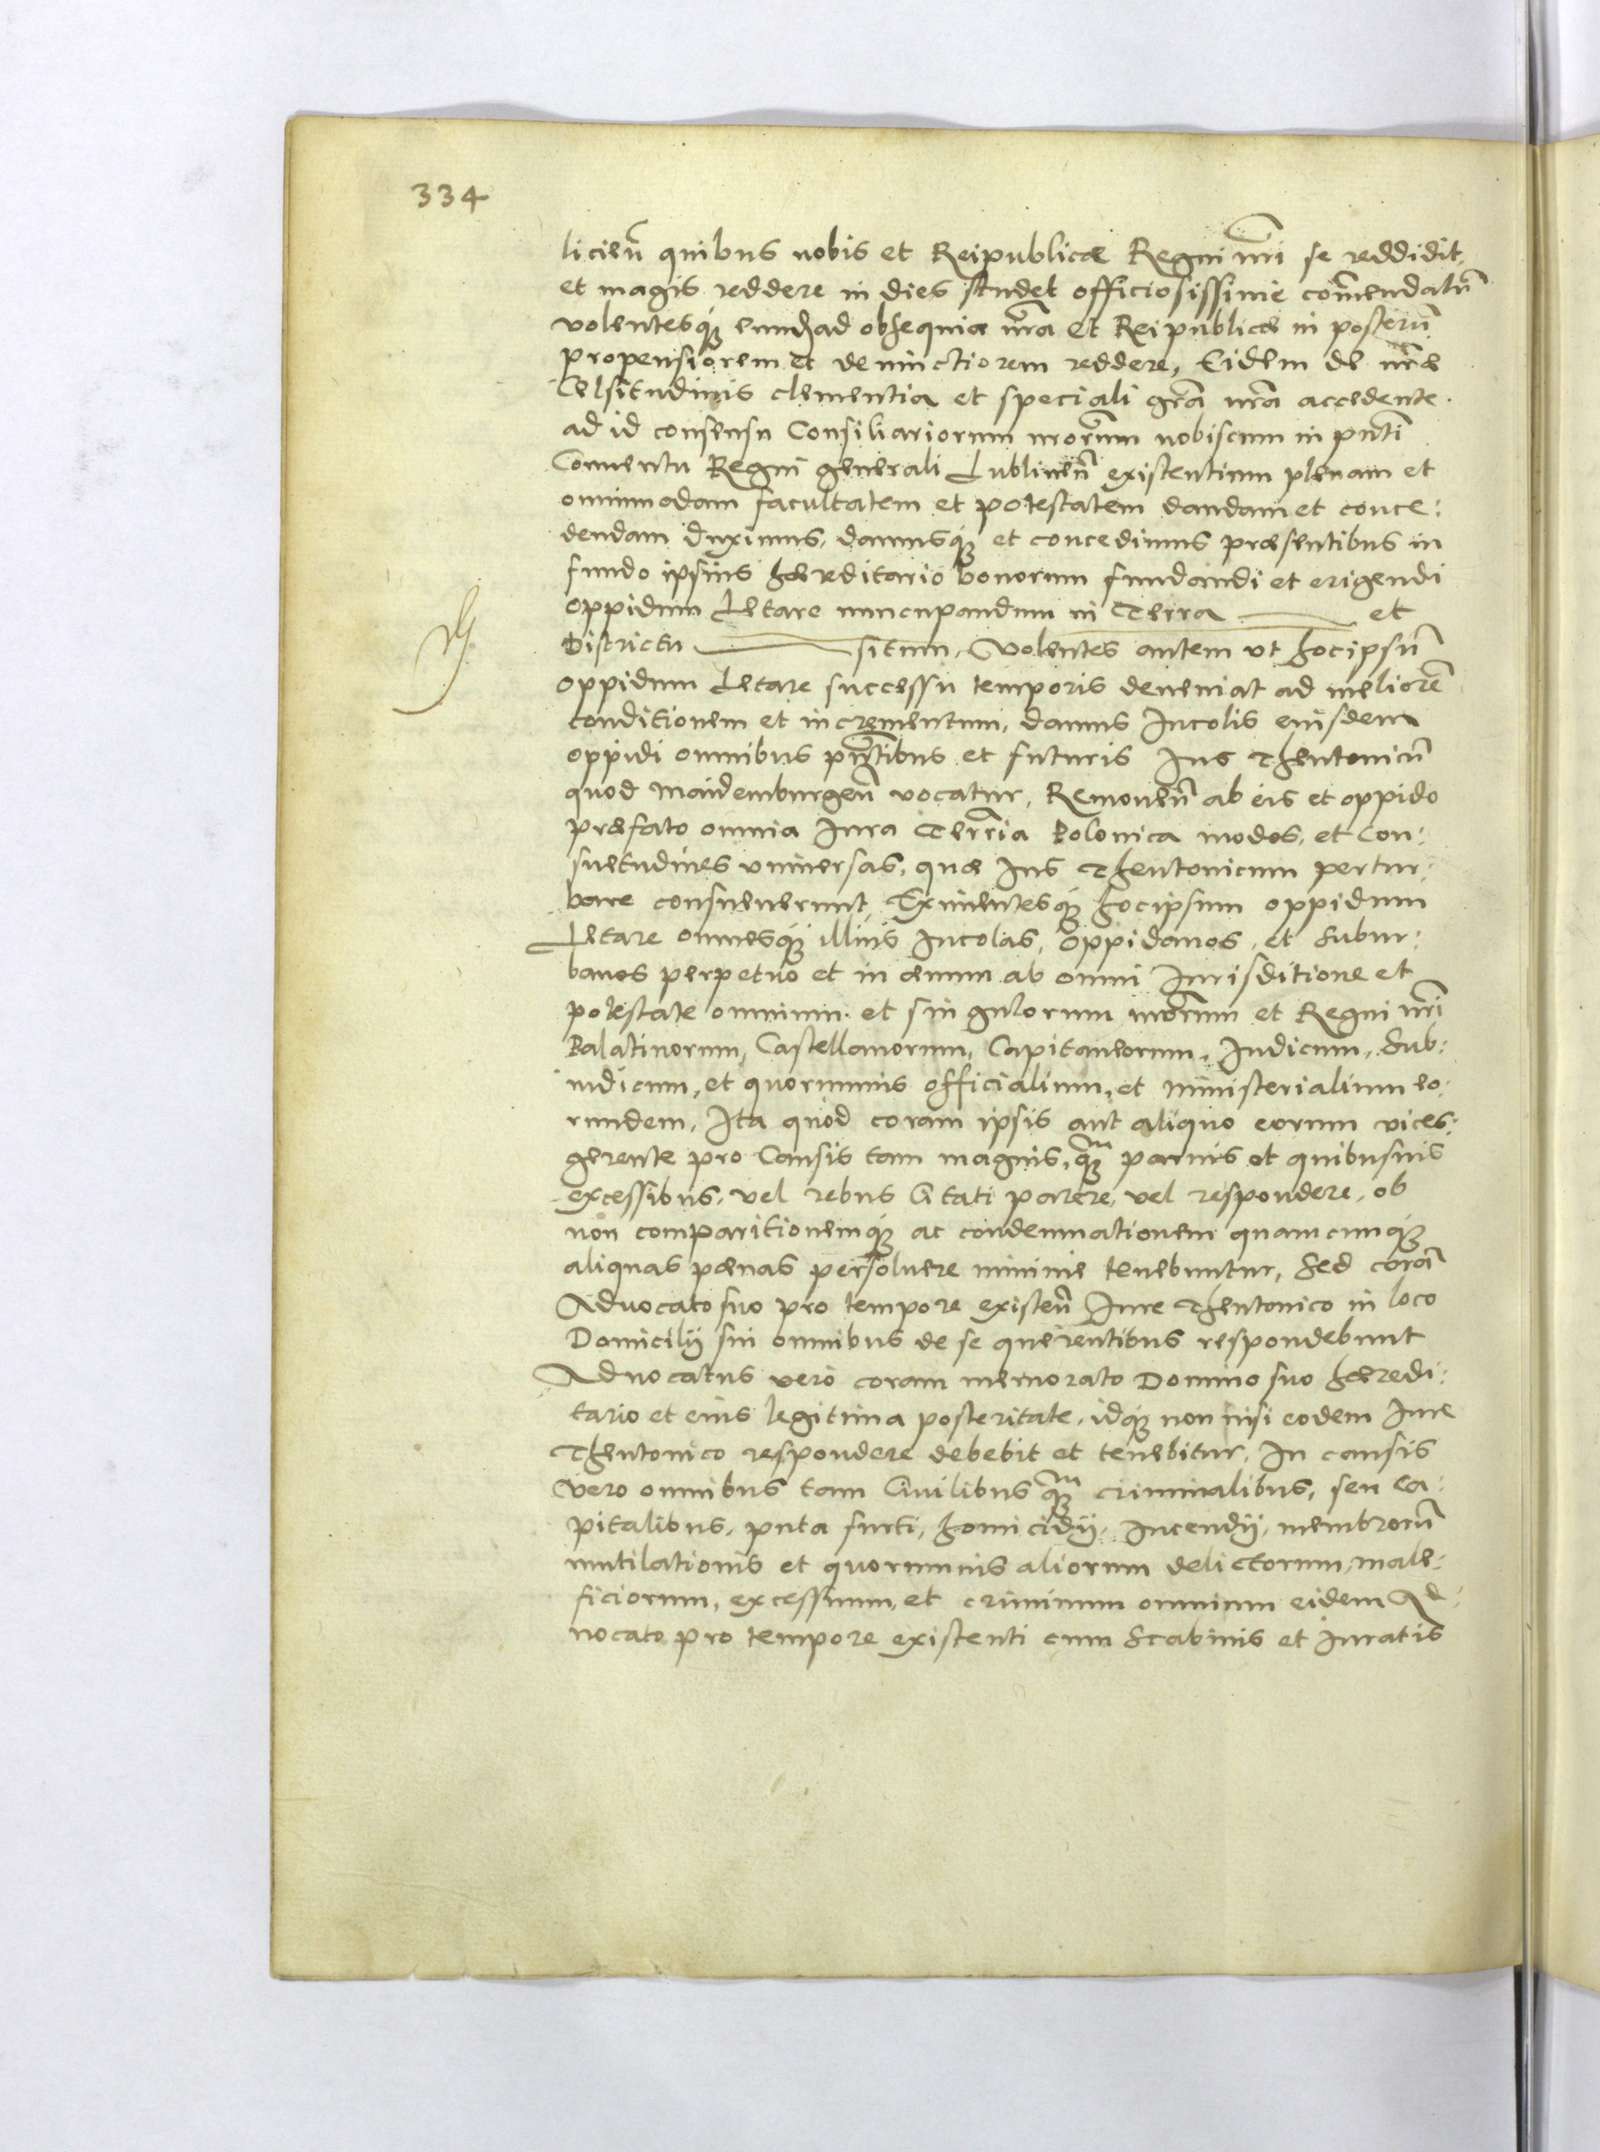 334
licien̄ quibus nobis et Reipublicæ Regni nr̄i se reddidit,
et magis reddere in dies studet officiosissime com̄endatū
volentesq; eund ad obsequia nr̄a et Reipublicæ in posterū
propensiorem et devinctiorem reddere, Eidem de nr̄æ
Celsitudinis clementia et speciali gr̄a nr̄a accedente
ad id consensu Consiliariorum nrōrum nobiscum in pn̄ti
Conuentu Regni generali Lublinen̄ existentium plenam et
omnimodam facultatem et potestatem dandam et conce:
dendam duximus, damusq; et concedimus præsentibus in
fundo ipsius hæreditario bonorum fundandi et erigendi
oppidum Letare nuncupandum in Terra et
Districtu situm, Volentes autem ut hocipsū
oppidum Letare successu temporis deueniat ad meliorē
conditionem et incrementum, damus Incolis eiusdem
oppidi omnibus pn̄tibus et futuris Ius Theutonicū
quod Maidemburgen̄ vocatur, Remouen̄ ab eis et oppido
præfato omnia Iura Terr̄ia Polonica modos, et con:
suetudines vniuersas, quæ Ius Theutonicum pertur:
bare consueuerunt, Eximentesq; hocipsum oppidum
Letare omnesq; illius Incolas, Oppidanos, et subur:
banos perpetuo et in æuum ab omni Iurisditione et
potestate omnium et singulorum nrōrum et Regni nr̄i
Palatinorum, Castellanorum, Capitaneorum, Iudicum, Sub:
iudicum, et quorumuis officialium, et ministerialium eo:
rundem, Ita quod coram ipsis aut aliquo eorum vices:
gerente pro Causis tam magnis, qm̄ paruis et quibusuis
excessibus, vel rebus Citati parere, vel respondere, ob
non comparitionemq; ac condemnationem quamcumq;
aliquas pænas persoluere minime tenebuntur, Sed corā
Aduocato suo pro tempore existen̄ Iure Theutonico in loco
Domicilii sui omnibus de se querentibus respondebunt
Aduocatus vero coram memorato Domino suo hæredi:
tario et eius legitima posteritate, idq; non nisi eodem Iure
Theutonico respondere debebit et tenebitur, In causis
vero omnibus tam Ciuilibus qm̄ criminalibus, seu ca:
pitalibus, puta furti, homicidii, Incendii, membrorū
mutilationis et quorumuis aliorum delictorum, male:
ficiorum, excessuum, et criminum omnium eidem Ad:
uocato pro tempore existenti cum Scabinis et Iuratis